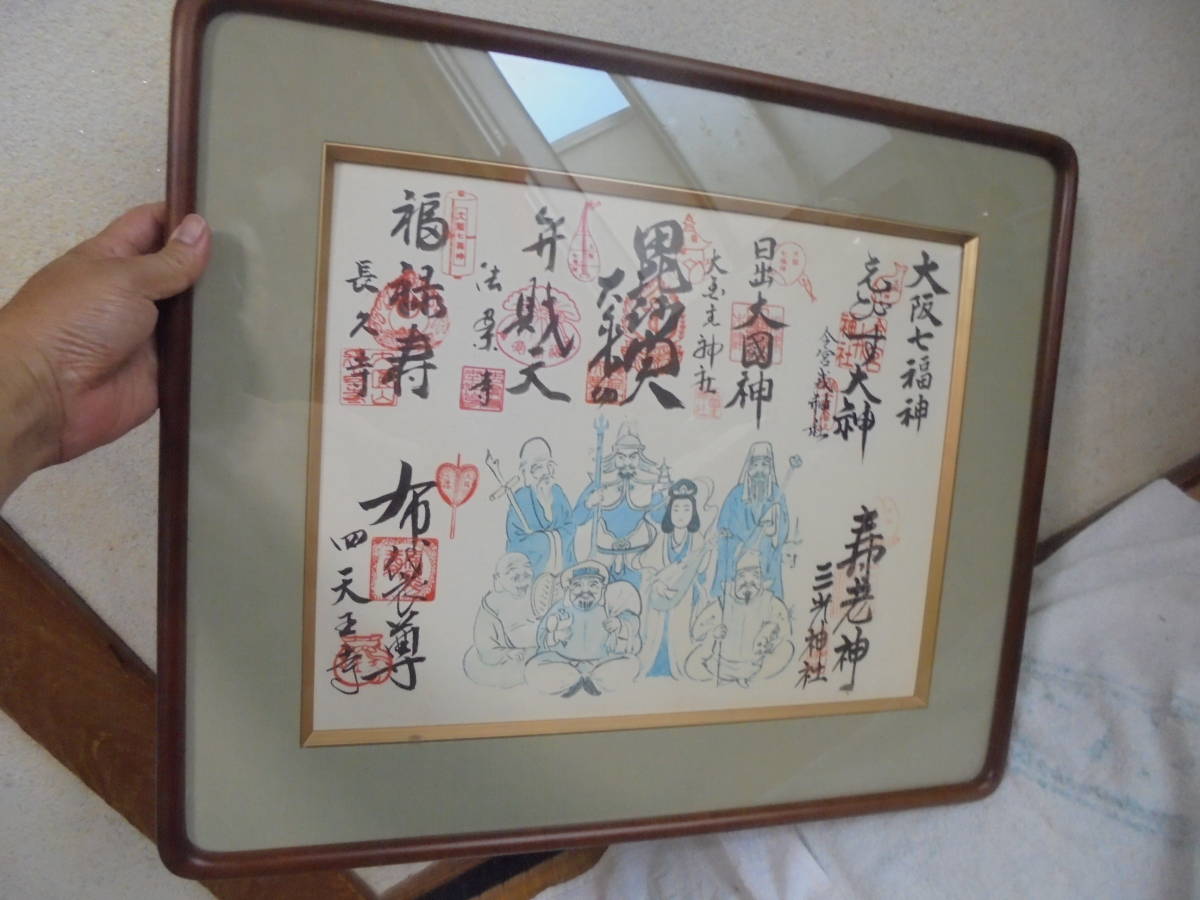 大阪七福神
えびす大神
今宮戎神社
日出大國神
大国主神社
毘沙門天
大乗坊
弁財天
法案寺
福禄寿
長久寺
寿老神
三光神社
布袋尊
四天王寺
大阪七福神